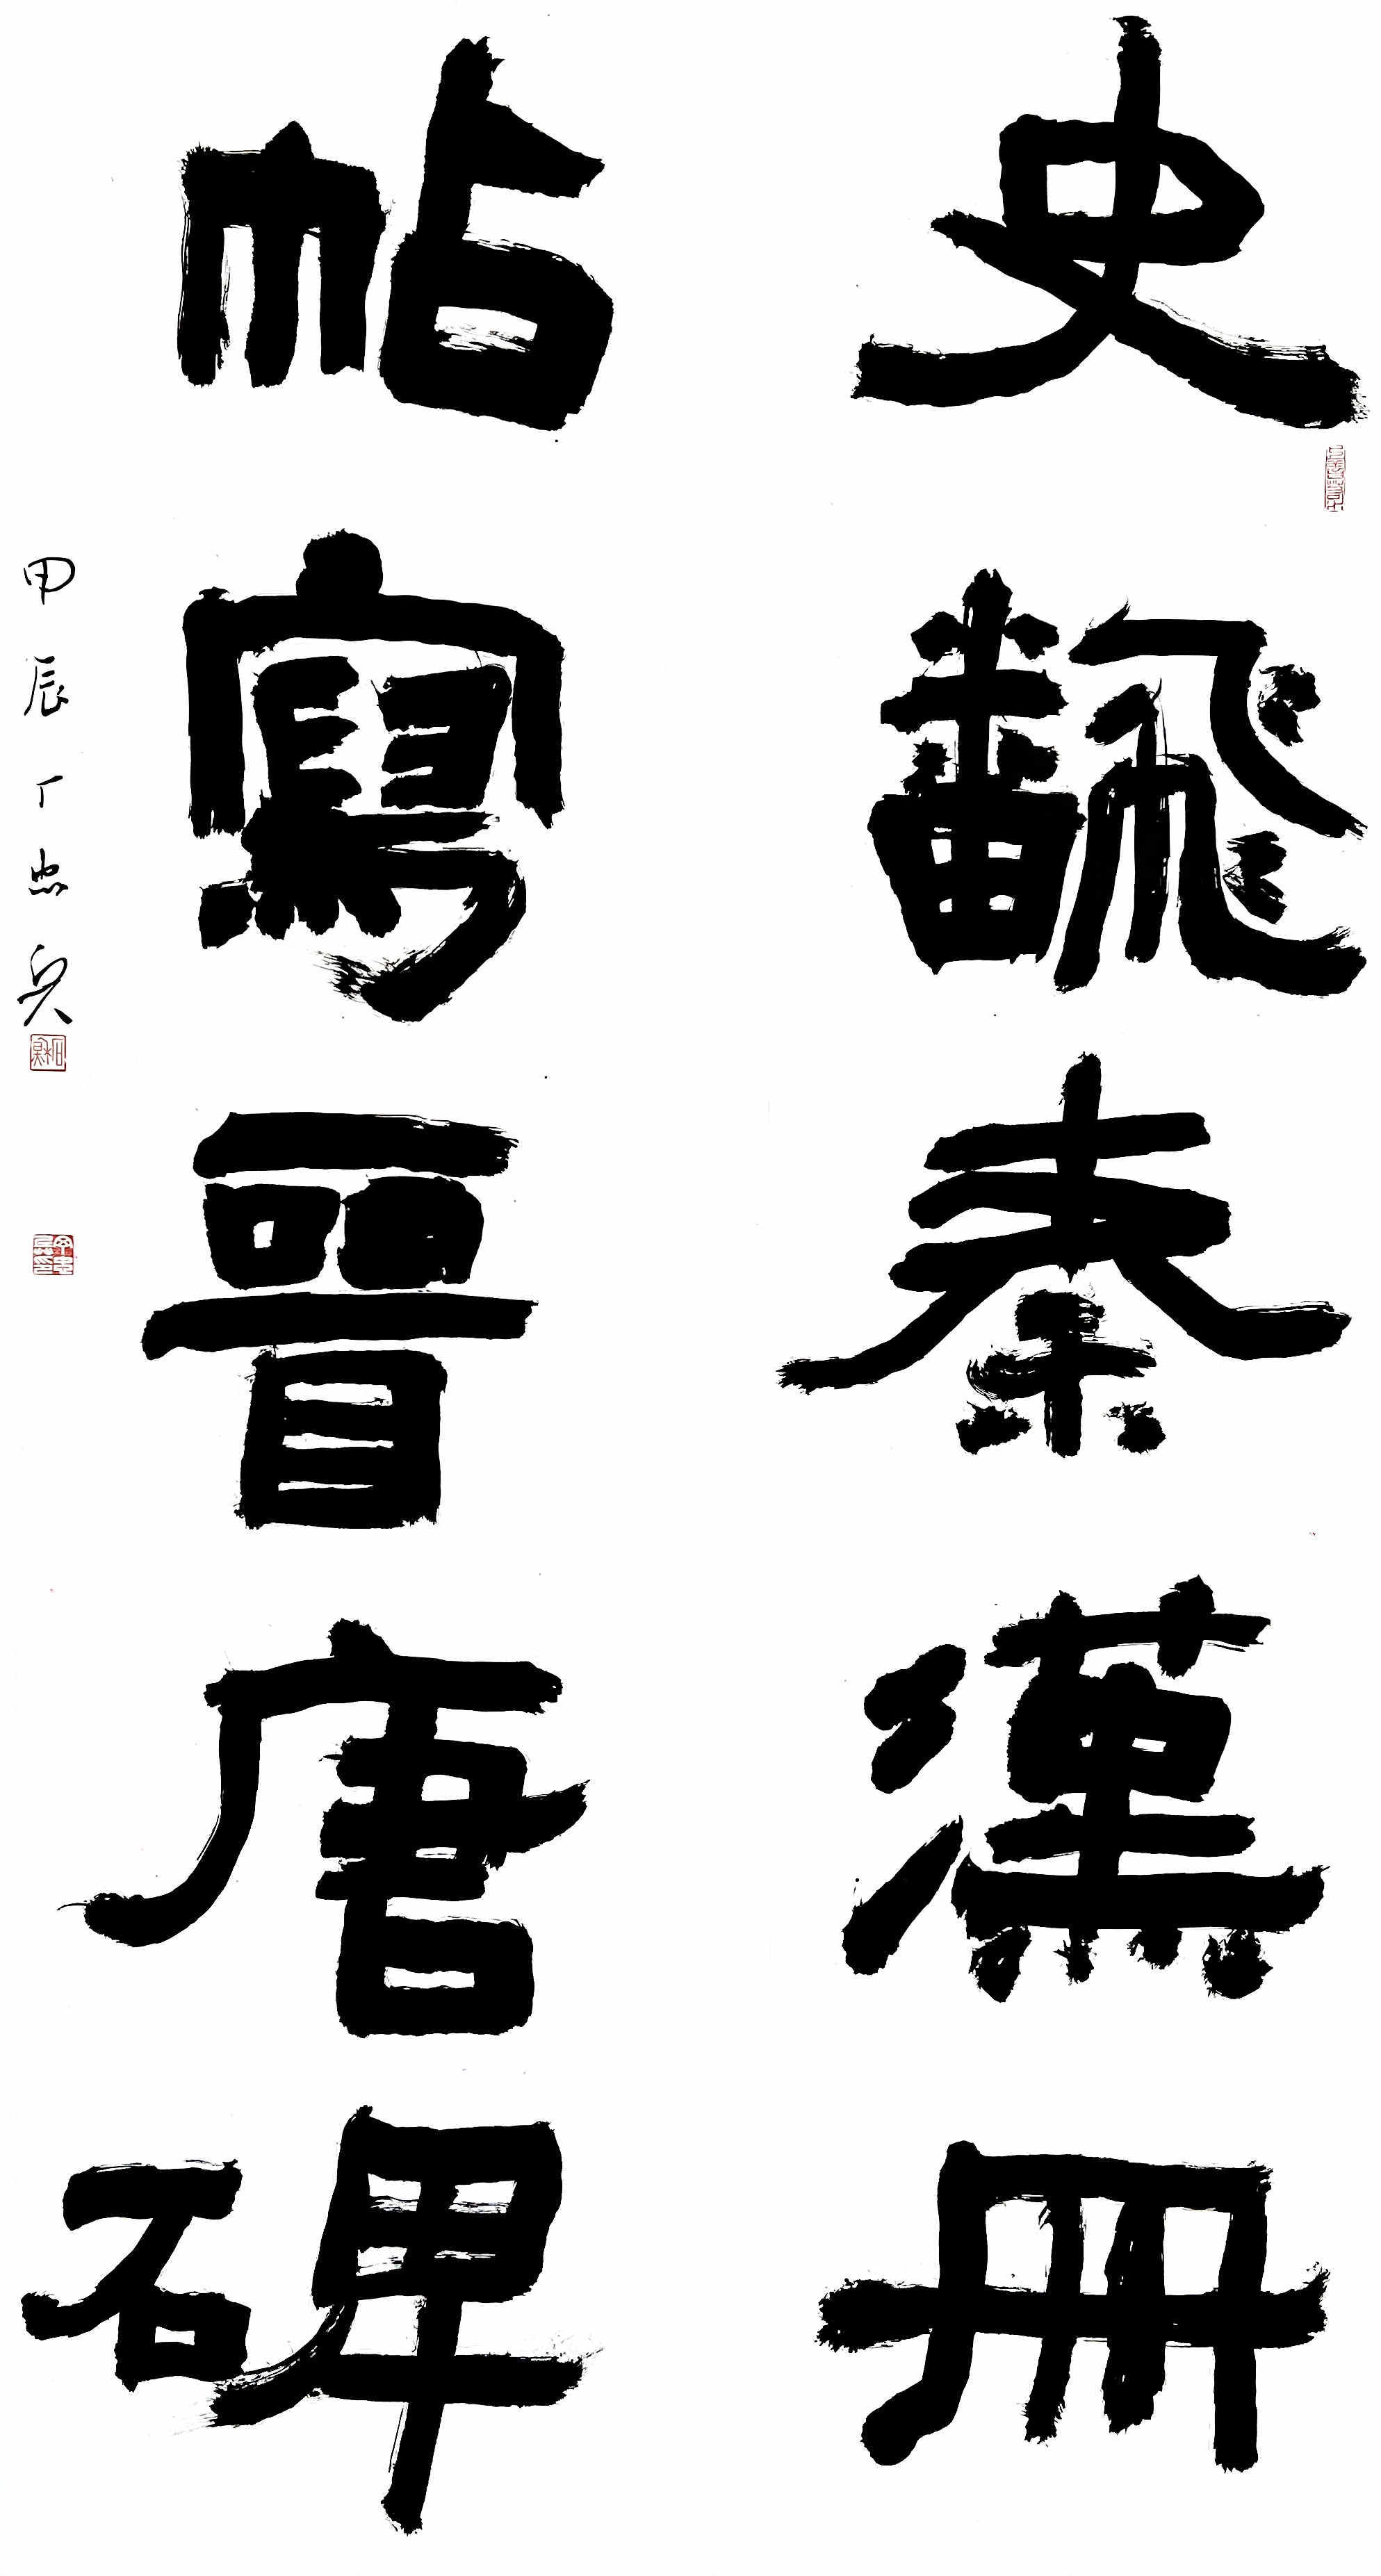 史飜秦漢冊
帖寫晉唐碑
甲辰丁忠兵